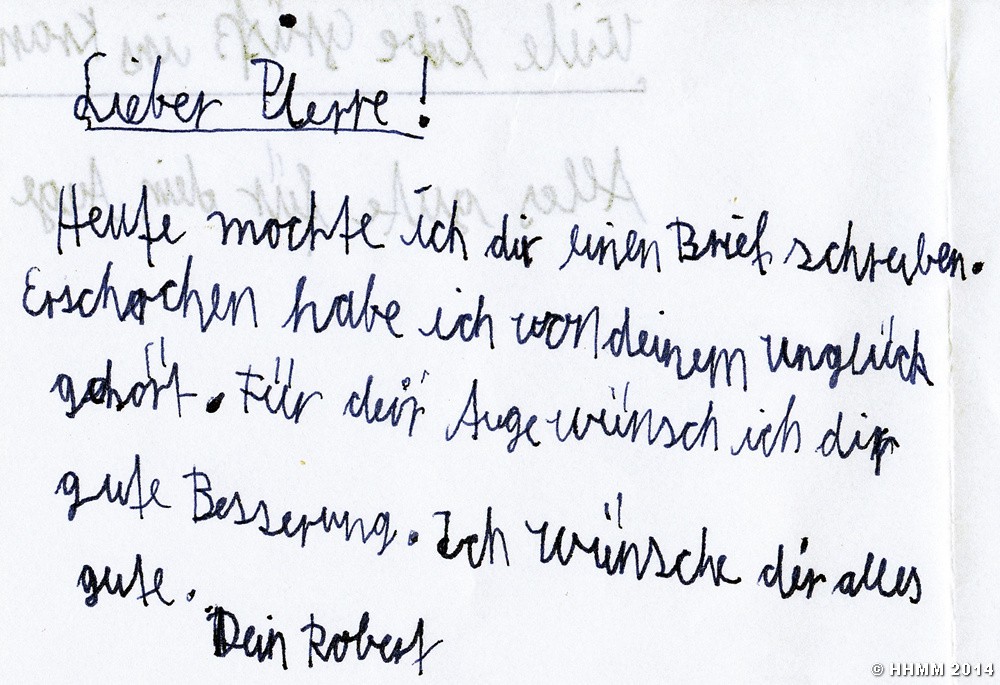 Lieber Pierre!
Heute mochte ich dir einen Brief schreiben.
Erschrochen habe ich von deinem unglück
gehört. Für dein Auge wünsch ich dir
gute Besserung. Ich wünsche dir alles
gute.
Dein Robert
© HHMM 2014